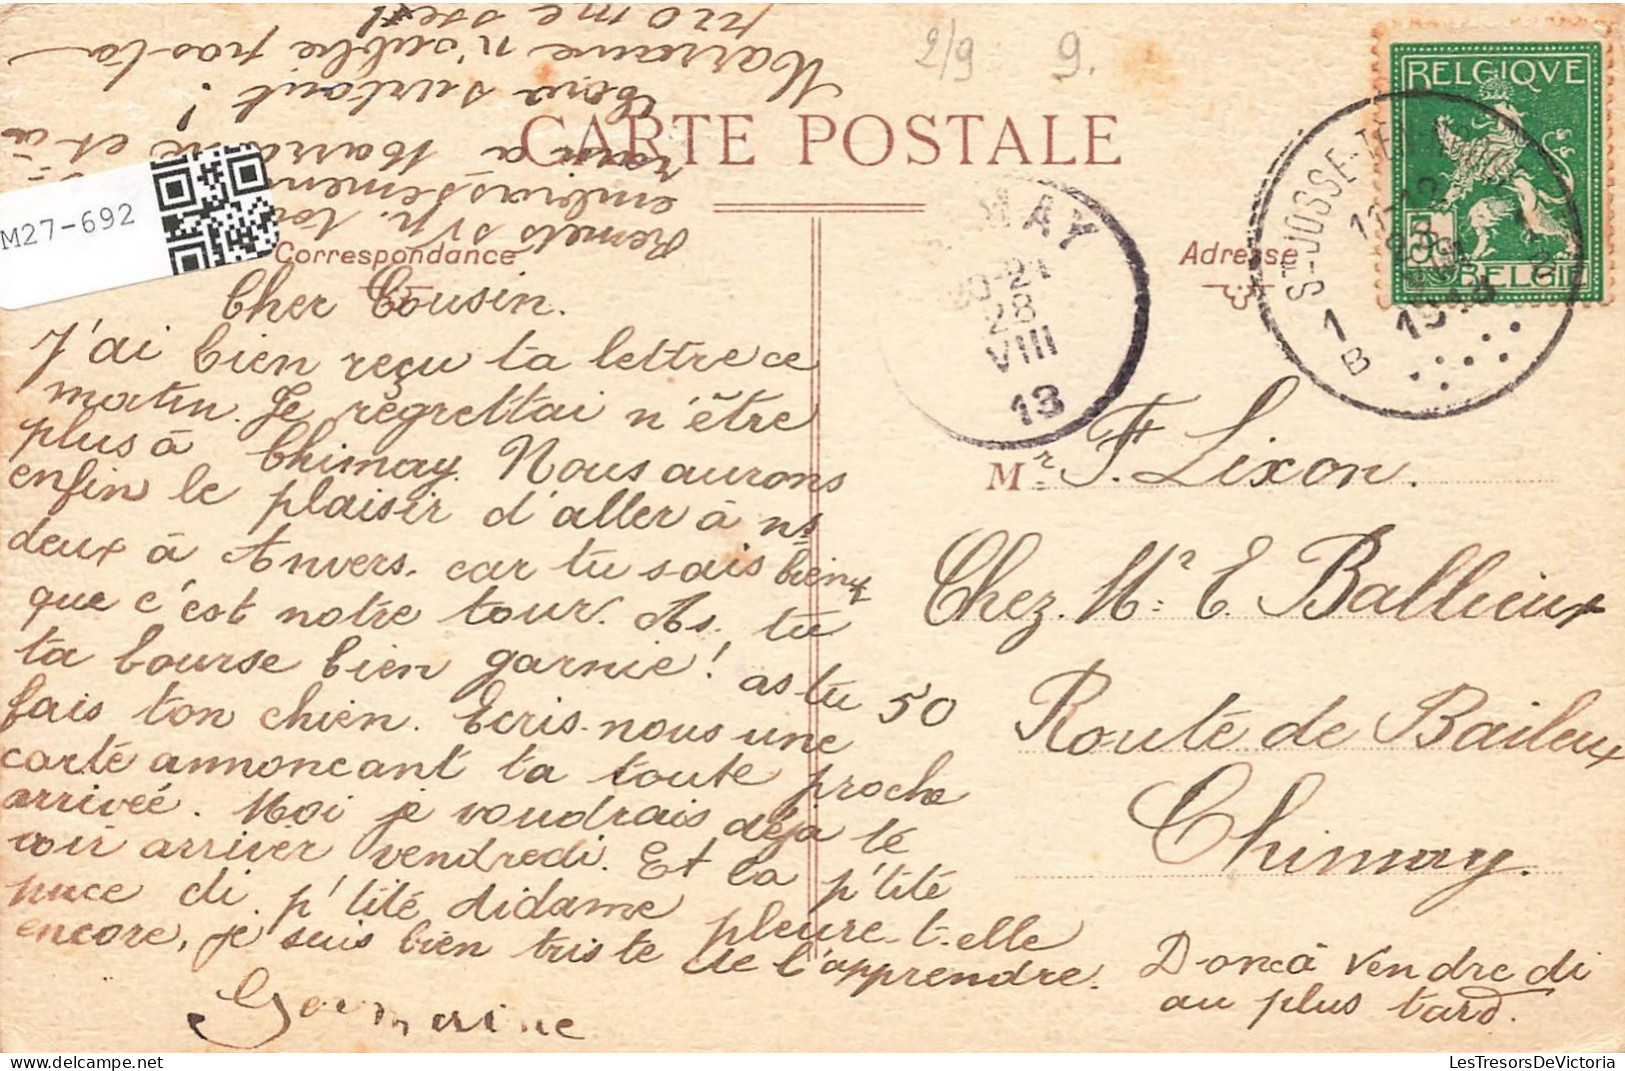 2/9 9.
CARTE POSTALE
Correspondance
Adresse
M27-692
BELGIQUE
5
BELGIË
ST-JOSSE-TEN
1913
1
B
MAY
20-21
28
VIII
13
Cher Cousin.
J'ai bien reçu ta lettre ce
matin. Je regrettai n'être
plus à Chimay. Nous aurons
enfin le plaisir d'aller à ns
deux à Anvers. car tu sais bien
que c'est notre tour. As. tu
ta bourse bien garnie! as tu 50
fais ton chien. Ecris-nous une
carte annoncant ta toute proche
arrivée. Moi je voudrais déjà te
voir arriver vendredi. Et la p'tité
puce di p'tité didame pleure-t-elle
encore, je suis bien triste de l'apprendre.
Germaine
Remets svp. 
embrassements
à Marraine et à
Bons surtout!
Marraine n'oublie pas ta
promesse!
Mr. F. Lixon.
Chez. Mr. E. Ballieux
Route de Baileux
Chimay.
Doncà vendredi
au plus tard.
LesTresorsDeVictoria